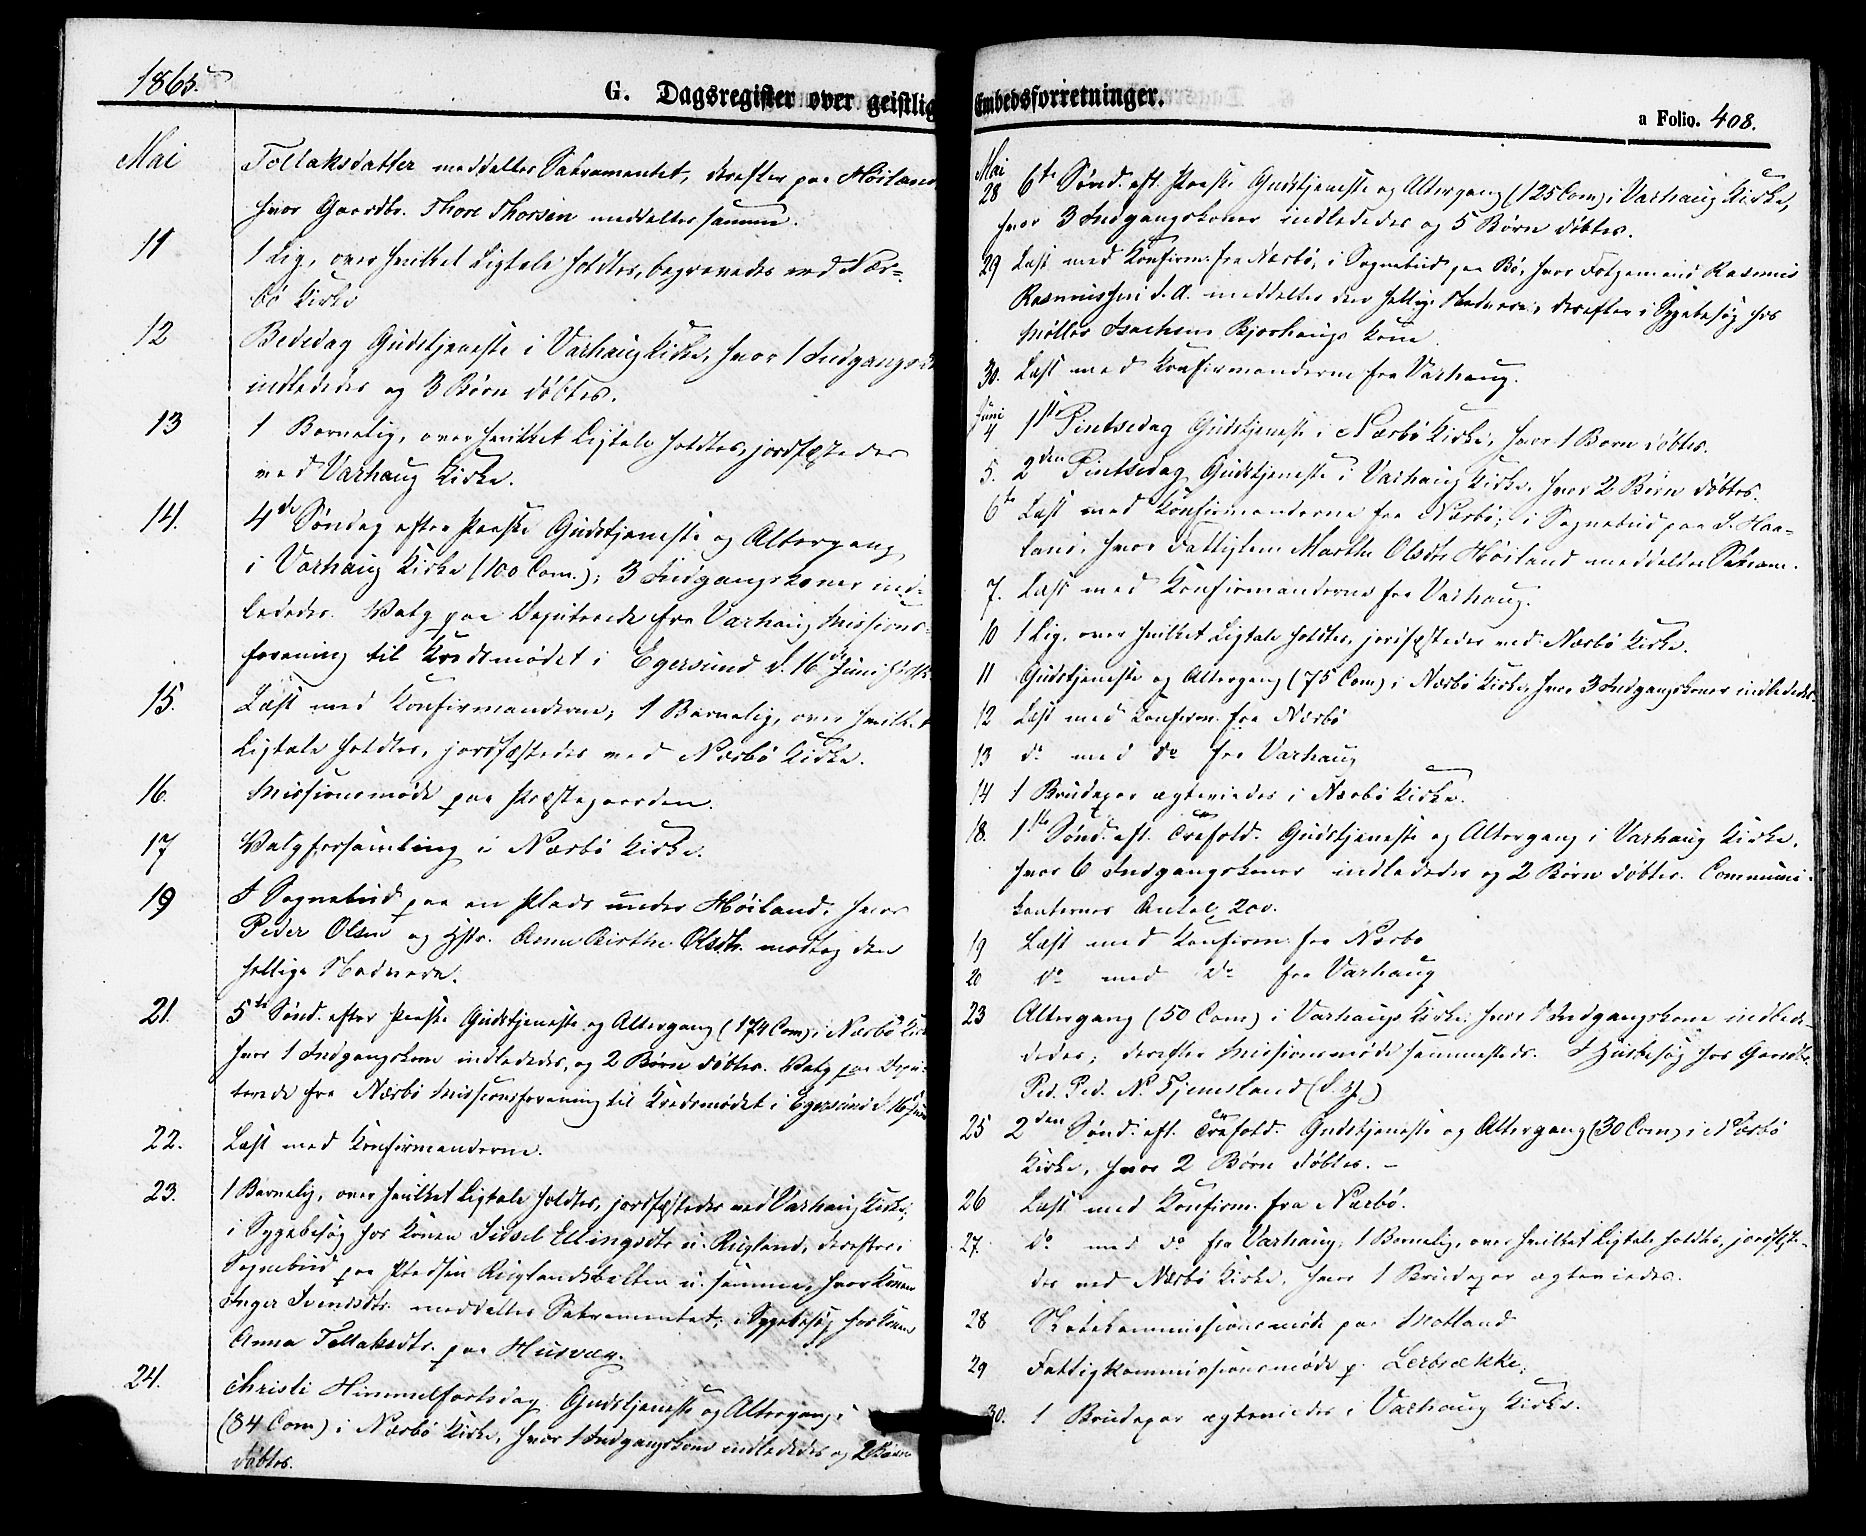 1865.
G. Dagsregister over geistlig
Mai
Tollaksdatter meddeltes Sakramentet, derefter paa Høiland
hvor Gaardbr. Thore Thorsen meddeltes samme.
11
1 Lig, over hvilket Ligtale holdtes, begravedes ved Nær-
bö Kirke
12
Bededag Gudstjeneste i Varhaug Kirke, hvor 1 Indgangsk
indlededes og 3 Börn döbtes.
13
1 Barnelig, over hvilket Ligtale holdtes, jordfæstedes
ved Varhaug Kirke.
14.
4de Söndag efter Paaske Gudstjeneste og Altergang
i Varhaug Kirke (100 Com.); 3 Indgangskoner ind-
lededes. Valg paa Deputerede fra Varhaug Missions-
forening til Kredsmödet i Egersund d. 16de Juni
15.
Læst med Konfirmanderne; 1 Barnelig, over hvilket
Ligtale holdtes, jordfæstedes ved Nærbö Kirke.
16.
Missionsmöde paa Præstegaarden.
17
Valgforsamling i Nærbö Kirke.
19
I Sognebud paa en Plads under Höiland, hvor
Peder Olsen og Hstr. Anne Birthe Olsdtr. modtog den
hellige Nadvere.
21.
5te Sönd. efter Paaske Gudstjeneste og Altergang (174 Com) i Nærbö Kirke
hvor 1 Indgangskone indlededes, og 2 Börn döbtes. Valg paa Depu-
terede fra Nærbö Missionsforening til Kredsmödet i Egersund d. 16 Juni
22.
Læst med Konfirmanderne.
23.
1 Barnelig, over hvilket Ligtale holdtes, jordfæstedes ved Varhaug Kirke;
i Sygebesög hos Konen Sidsel Ellingsdtr u. Rugland, derefter i
Sognebud paa Pladsen Ruglandsbakken u. samme, hvor Konen
Inger Svendsdtr. meddeltes Sakramentet; i Sygebesög hos Konen
Anna Tollaksdtr. paa Husvæg.
24.
Christi Himmelfartsdag Gudstjeneste og Altergang
(84 Com) i Nærbö Kirke, hvor 1 Indgangskone indlededes og 2 Börn
döbtes.
Embedsforretninger.
a Folio. 408.
Mai
28 6te Sönd. eft. Paaske Gudstjeneste og Altergang (125 Com) i Varhaug Kirke,
hvor 3 Indgangskoner indlededes og 5 Börn döbtes.
29 Læst med Konfirm. fra Nærbö; i Sognebud paa Bö, hvor Folgemand Rasmus
Rasmussen d. A. meddeltes den hellige Nadvere, derefter i Sygebesög hos
Möller Isachsen Bjorhaugs Kone.
30. Læst med Konfirmanderne fra Varhaug.
Juni
4 1ste Pintsedag Gudstjeneste i Nærbö Kirke, hvor 1 Barn döbtes.
5. 2den Pintsedag Gudstjeneste i Varhaug Kirke, hvor 2 Börn döbtes.
6te Læst med Konfirmanderne fra Nærbö; i Sognebud paa S. Haa-
land, hvor Fattiglem Marthe Olsdtr Höiland meddeltes Sakram.
7. Læst med Konfirmanderne fra Varhaug.
10 1 Lig, over hvilket Ligtale holdtes, jordfæstedes ved Nærbö Kirke.
11 Gudstjeneste og Altergang (75 Com) i Nærbö Kirke, hvor 3 Indgangskoner indlededes.
12 Læst med Konfirm. fra Nærbö
13 do med do fra Varhaug
14 1 Brudepar ægteviedes i Nærbö Kirke.
18. 1ste Sönd. eft. Trefold. Gudstjeneste og Altergang i Varhaug Kirke,
hvor 6 Indgangskoner indlededes og 2 Börn döbtes. Communi-
kanternes Antal 200.
19 Læst med Konfirm. fra Nærbö
20 do med do fra Varhaug
23 Altergang (50 Com) i Varhaugs Kirke, hvor 1 Indgangskone indlede-
dedes, derefter Missionsmöde sammesteds. I Husbesög hos Gaardbr.
Ped. Ped. N. Tjemsland
25 2den Sönd. eft. Trefold. Gudstjeneste og Altergang (30 Com) i Nærbö
Kirke, hvor 2 Börn döbtes. –
26 Læst med Konfirm. fra Nærbö.
27. do med do fra Varhaug; 1 Barnelig, over hvilket Ligtale holdtes, jordfæste-
des ved Nærbö Kirke, hvor 1 Brudepar ægteviedes.
28 Skolekommissionsmöde paa Motland
29 Fattigkommissionsmöde p. Lerbrække;
30. 1 Brudepar ægteviedes i Varhaug Kirke.